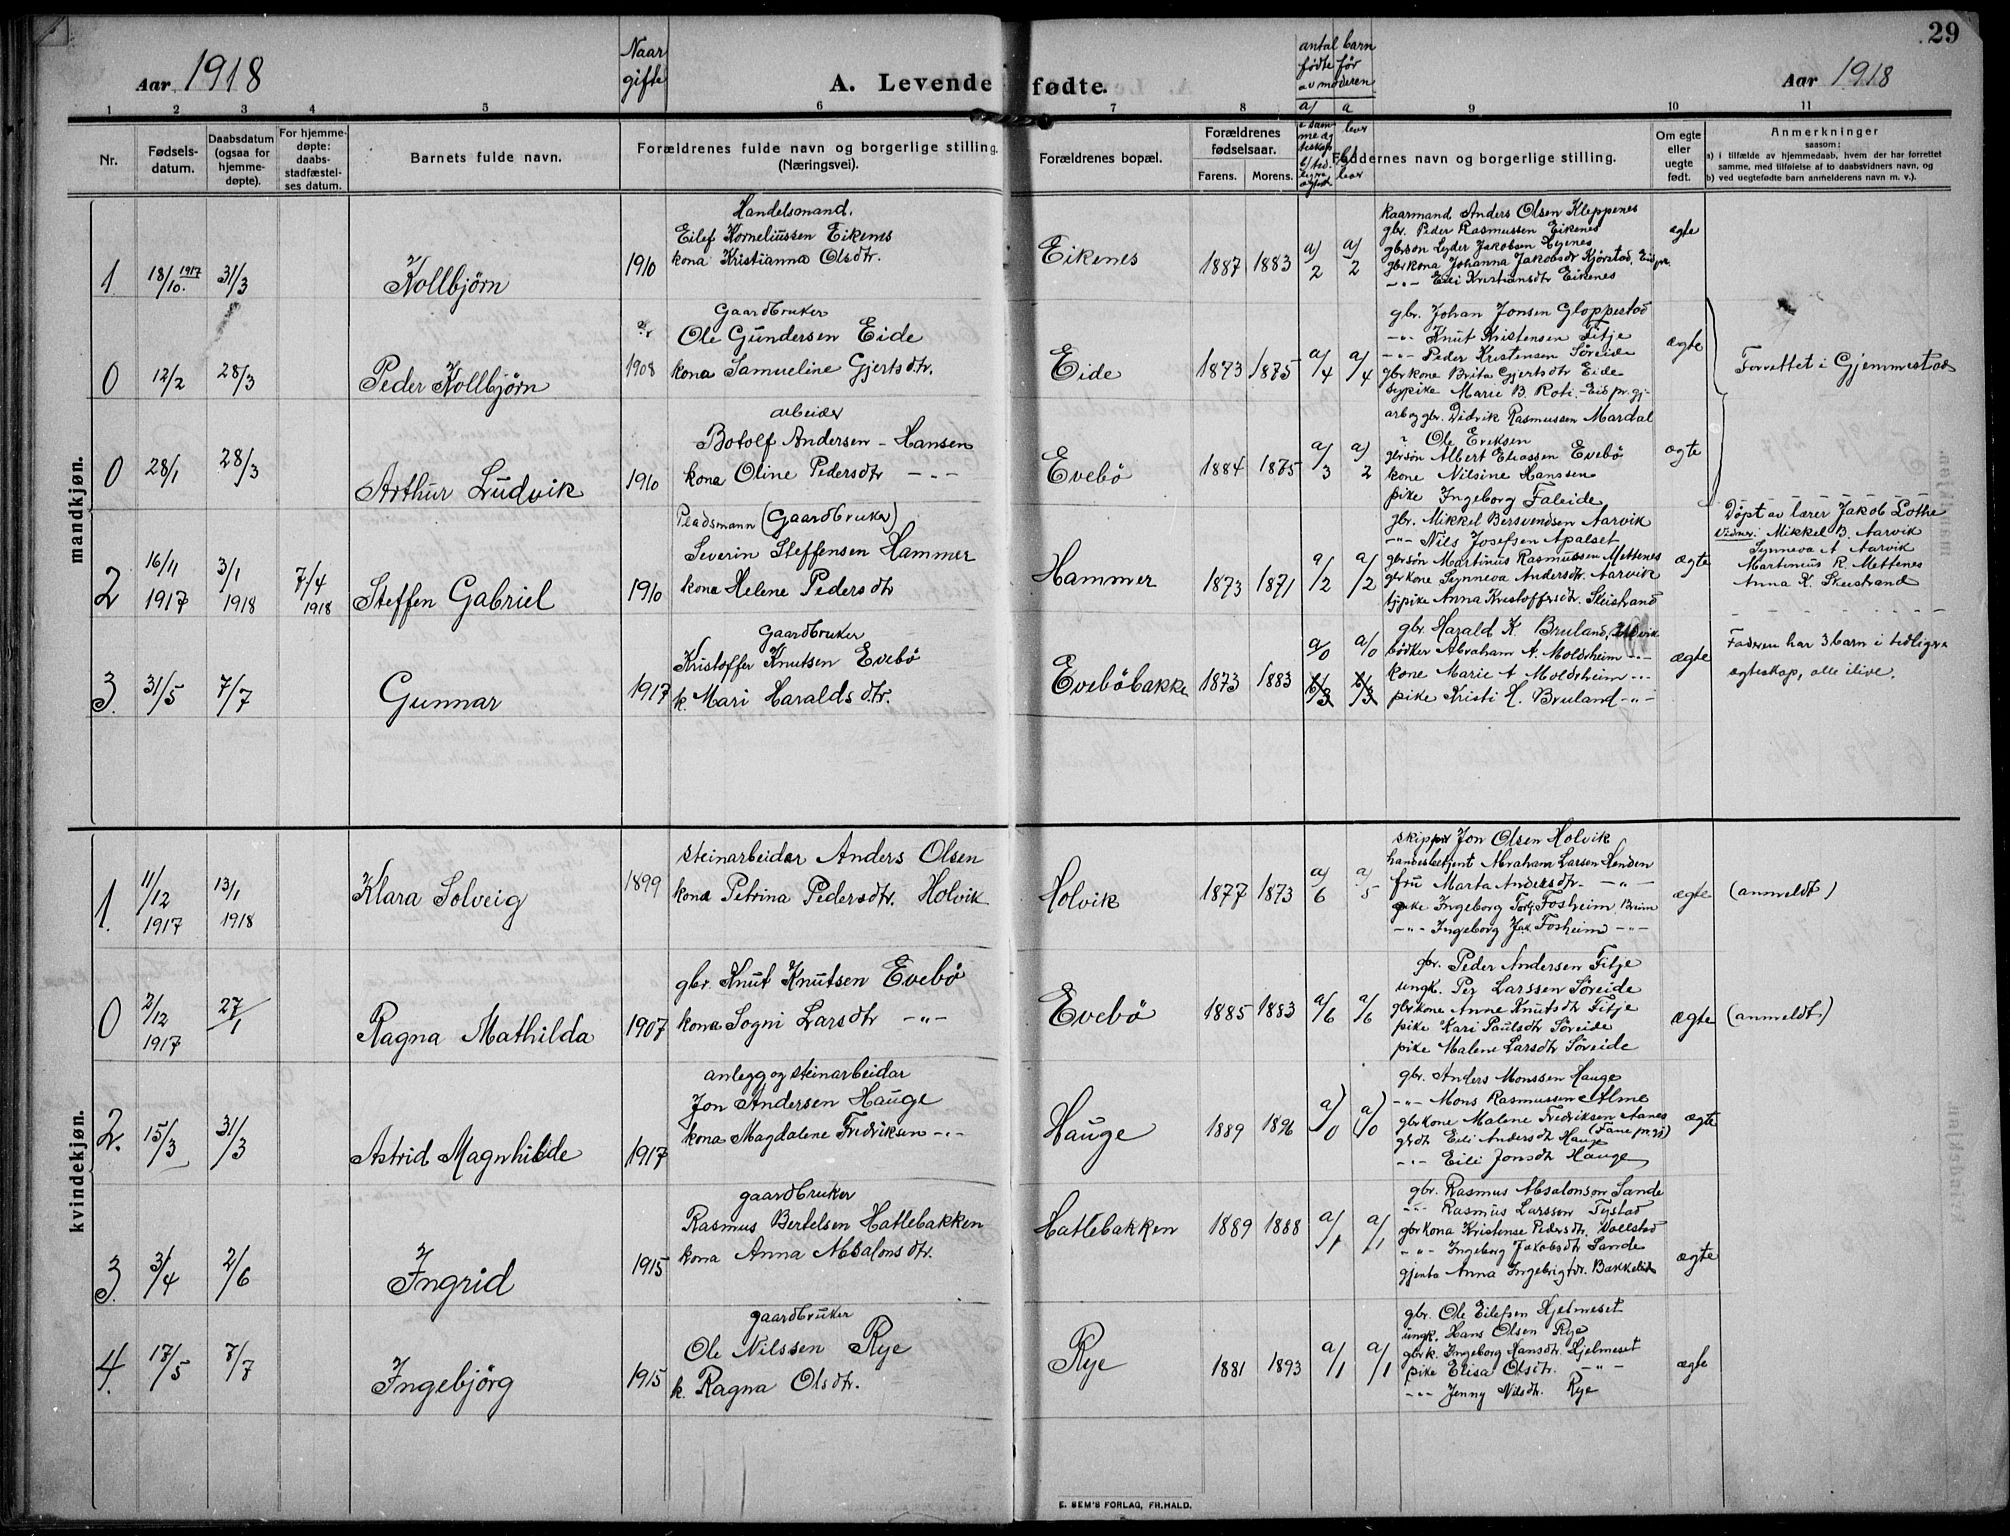 29
Aar 1918
Naar gifte
A. Levende fødte.
antal barn fødte før av moderen
Aar 1918
1 2 3 4 5 6 7 8 9 10 11
Nr.
Fødsels-datum.
Daabsdatum (ogsaa for hjemme-døpte).
For hjemme-døpte: daabs-stadfæstel-ses datum.
Barnets fulde navn.
Forældrenes fulde navn og borgerlige stilling. (Næringsvei).
Forældrenes bopæl.
Forældrenes fødselsaar.
Farens. Morens.
Faddernes navn og borgerlige stilling.
Om egte eller uegte født.
Anmerkninger
saasom:
a) i tilfælde av hjemmedaab, hvem der har forrettet samme, med tilføielse af to daabsvidners navn, og
b) ved uegtefødte barn anmelderens navn m. v.).
mandkjøn.
1 18/10 1917 31/3 Kollbjørn 1910
Handelsmand.
Eilef Korneliussen Eikenes
kona Kristianna Olsdtr.
Eikenes 1887 1883 a/2 a/2
Kaarmand Anders Olsen Kleppenes
gbr. Peder Rasmussen Eikenes
gbrsøn Lyder Jakobsen
gbrkona Johanna Jakobsdr Kjørstad, Eid pr.
-"- Eili Kristiansdtr Eikenes
ægte
0 12/2 28/3 Peder Kollbjørn 1908
Gaardbruker
Ole Gundersen Eide
kona Samueline Gjertsdtr.
Eide 1873 1875 a/4 a/4
gbr. Johan Jonsen Gloppestad
-"- Knut Kristensen Fitje
-"- Peder Kristensen Søreide
gbrkone Brita Gjertsdtr Eide
sypike Marie B. Roti - Eid pr.gj.
ægte
Forrettet i Gjemmestad
0 28/1 28/3 Arthur Ludvik 1910
arbeider
Botolf Andersen - Hansen
kona Oline Pedersdtr -"-
Evebø 1884 1875 a/3 a/2
arb og gbr. Didrik Rasmussen Mardal
? Ole Eriksen
gbrsøn Albert Eliassen Evebø
kone Nilsine Hanssen
pike Ingeborg Faleide
ægte
2 16/11 1917 3/1 1918 7/4 1918 Steffen Gabriel 1910
Pladsmann (Gaardbruker)
Severin Steffensen Hammer
kona Helene Pedersdtr
Hammer 1873 1871 a/2 a/2
gbr. Mikkel Bersvendsen Aarvik
-"- Nils Josefsen Apalset
gbrsøn Martinus Rasmussen Mettenes
gbrkone Synneva Andersdtr. Aarvik
tjpike Anna Kristoffersdtr. Skeistrand
ægte
Døpt av lærer Jakob Lothe
Vidner: Mikkel B. Aarvik
Synneva A Aarvik
Martinius R. Mettenes
Anna K. Skeistrand
3. 31/5 7/7 Gunnar 1917
Gaardbruker
Kristoffer Knutsen Evebø
k. Mari Haraldsdtr.
Evebøbakke 1873 1883 a/0 a/0 b/3 b/3
gbr. Harald K. Bruland,
bødker Abraham A. Moldrheim -"-
kone Marie A Moldrheim -"-
pike Kristi H. Bruland -"-
ægte
Faderen har 3 barn i tidligere
ægteskap, alle ilive.
kvindekjøn.
1. 11/12 1917 13/1 1918 Klara Solveig 1899
steinarbeidar Anders Olsen
kona Petrina Pedersdtr. Holvik
Holvik 1877 1873 a/6 a/5
skipper Jon Olsen Holvik
handesbetjent Abraham Larsen Henden
fru Marta Andersdtr. -"-
pike Ingeborg Fosheim, Breim
-"- Ingeborg Jak. Fosheim -"-
ægte (anmeldt)
0 2/12 1917 27/1 Ragna Mathilda 1907
gbr. Knut Knutsen Evebø
kona Sogni Larsdtr -"-
Evebø 1885 1883 a/6 a/6
gbr. Peder Andersen Fitje
ungk. Per Larssen Søreide
gbrkone Anne Knutsdtr Fitje
pike Kari Paulsdtr Søreide
pike Malene Larsdtr Søreide
ægte (anmeldt)
2. 15/3 31/3 Astrid Magnhilde 1917
anlegg og steinarbeidar
Jon Andersen Hauge
kona Magdalene Fredriksen -"-
Hauge 1889 1896 a/0 a/0
gbr. Anders Monssen Hauge
-"- Mons Rasmussen Alme
gbrkone Malene Fredriksen Aanes
gbdtr Eili Andersdtr Hauge
-"- Eili Jonsdtr Hauge
ægte
3. 3/4 2/6 Ingrid 1915
gaardbruker
Rasmus Bertelsen Hatlebakken
kona Anna Absalonsdtr.
Hatlebakken 1889 1888 a/1 a/1
gbr. Rasmus Absalonson Sande
-"- Rasmus Larssen Tystad
gbrkona Kristense Pedersdtr. Vollstad
-"- Ingeborg Jakobsdtr Sande
gjenta Anna Ingebrigtdr. Bakkelid
ægte
4. 17/5 7/7 Ingebjørg 1915
gaardbruker
Ole Nilssen Rye
k. Ragna Olsdtr.
Rye 1881 1893 a/1 a/1
gbr. Ole Eilefsen Hjelmeset
ungk. Hans Olsen Rye
gbrk. Ingeborg Hansdtr. Hjelmeset
pike Elisa Olsdtr. -"-
-"- Jenny Nilsdtr. Rye
ægte
E. SEM'S FORLAG, FR.HALD.